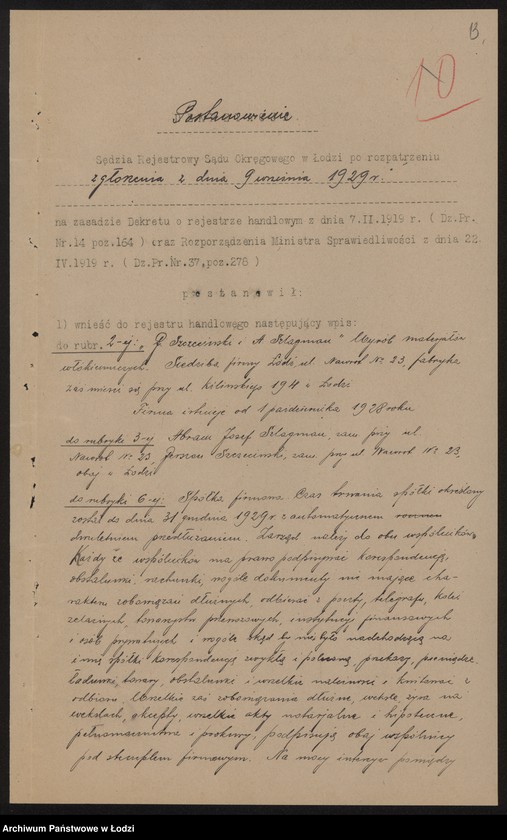 13.
10
Postanowienie.
Sędzia Rejestrowy Sądu Okręgowego w Łodzi po rozpatrzeniu
zgłoszenia z dnia 9 września 1929 r.
na zasadzie Dekretu o rejestrze handlowym z dnia 7.II.1919 r. ( Dz.Pr.
Nr.14 poz.164 ) oraz Rozporządzenia Ministra Sprawiedliwości z dnia 22
IV.1919 r. ( Dz.Pr.Nr.37,poz.278 )
p o s t a n o w i ł:
1) wnieść do rejestru handlowego następujący wpis:
do rubr. 2-ej: Szczeciński i A Szlagman" Wyrób materjałów
włókienniczych. Siedziba firmy Łódź, ul. Nawrot Nr. 23, fabryka
zaś mieści się przy ul. Kilińskiego 194 w Łodzi
Firma istnieje od 1 października 1928 roku
do rubryki 3-ej Abram Josef Szlagman, zam. przy ul
Nawrot Nr. 23 Gerszon Szczeciński, zam. przy ul Nawrot Nr. 23,
obaj w Łodzi
do rubryki 6-ej: Spółka firmowa. Czas trwania spółki określony
został do dnia 31 grudnia 1929 r z automatycznem
dwuletniem przedłużaniem. Zarząd należy do obu wspólników.
Każdy ze wspólników ma prawo podpisywać korespondencję,
obstalunki, rachunki, wogóle dokumenty nie mające cha-
rakteru zobowiązań dłużnych, odbierać z poczty, telegrafu, kolei
żelaznych, towarzystw przewozowych, instytucji finansowych
i osób prywatnych i wogóle skąd by nie było nadchodzącą na
imię spółki korespondencję zwykłą i poleconą, przekazy, pieniądze,
ładunki, towary, obstalunki i wszelkie należności i kwitować z
odbioru. Wszelkie zaś zobowiązania dłużne, weksle, żyra na
wekslach, akcepty, wszelkie akty notarjalne i hipoteczne,
pełnomocnictwa i prokury, podpisują obaj wspólnicy
pod stemplem firmowym. Na mocy intercyz pomiędzy
Archiwum Państwowe w Łodzi